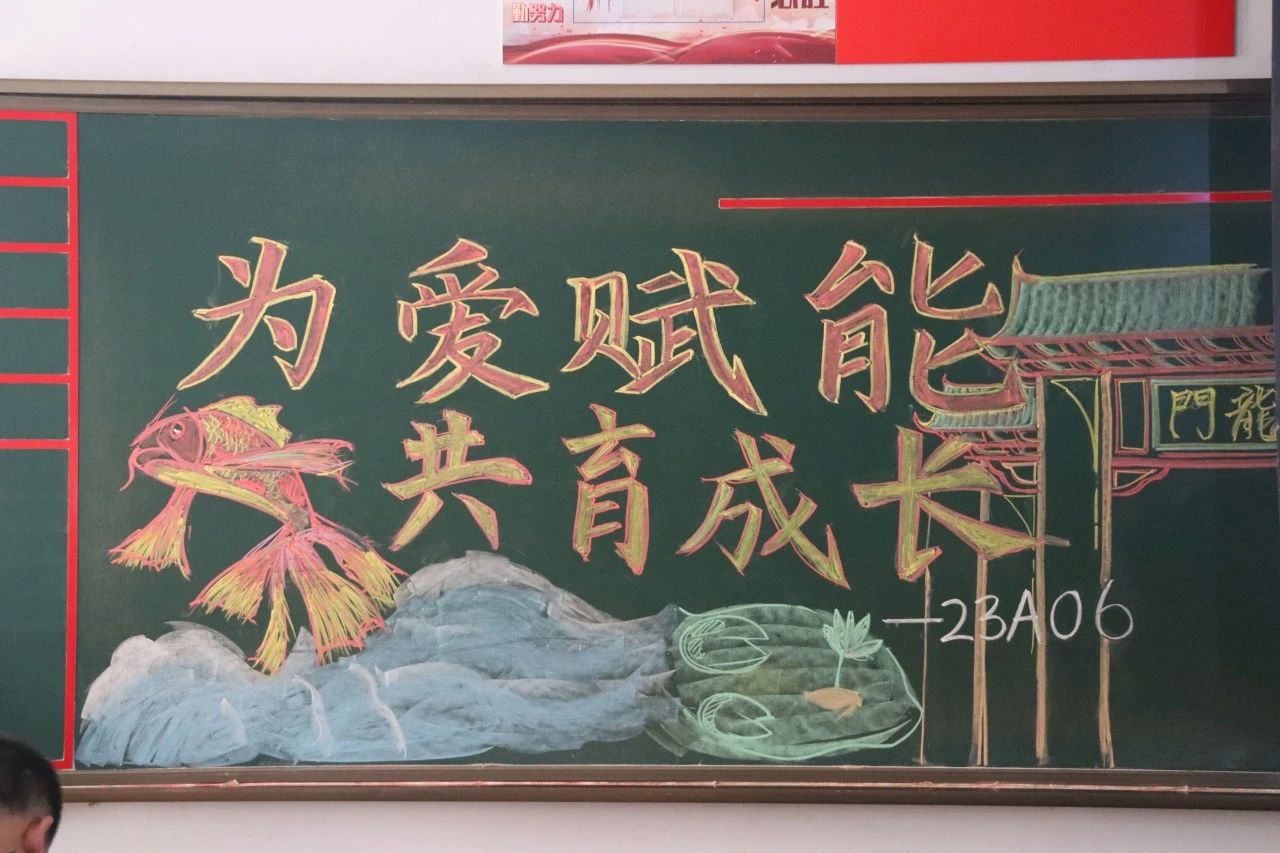 勤努力
为爱赋能
門龍
共育成长
—23A06